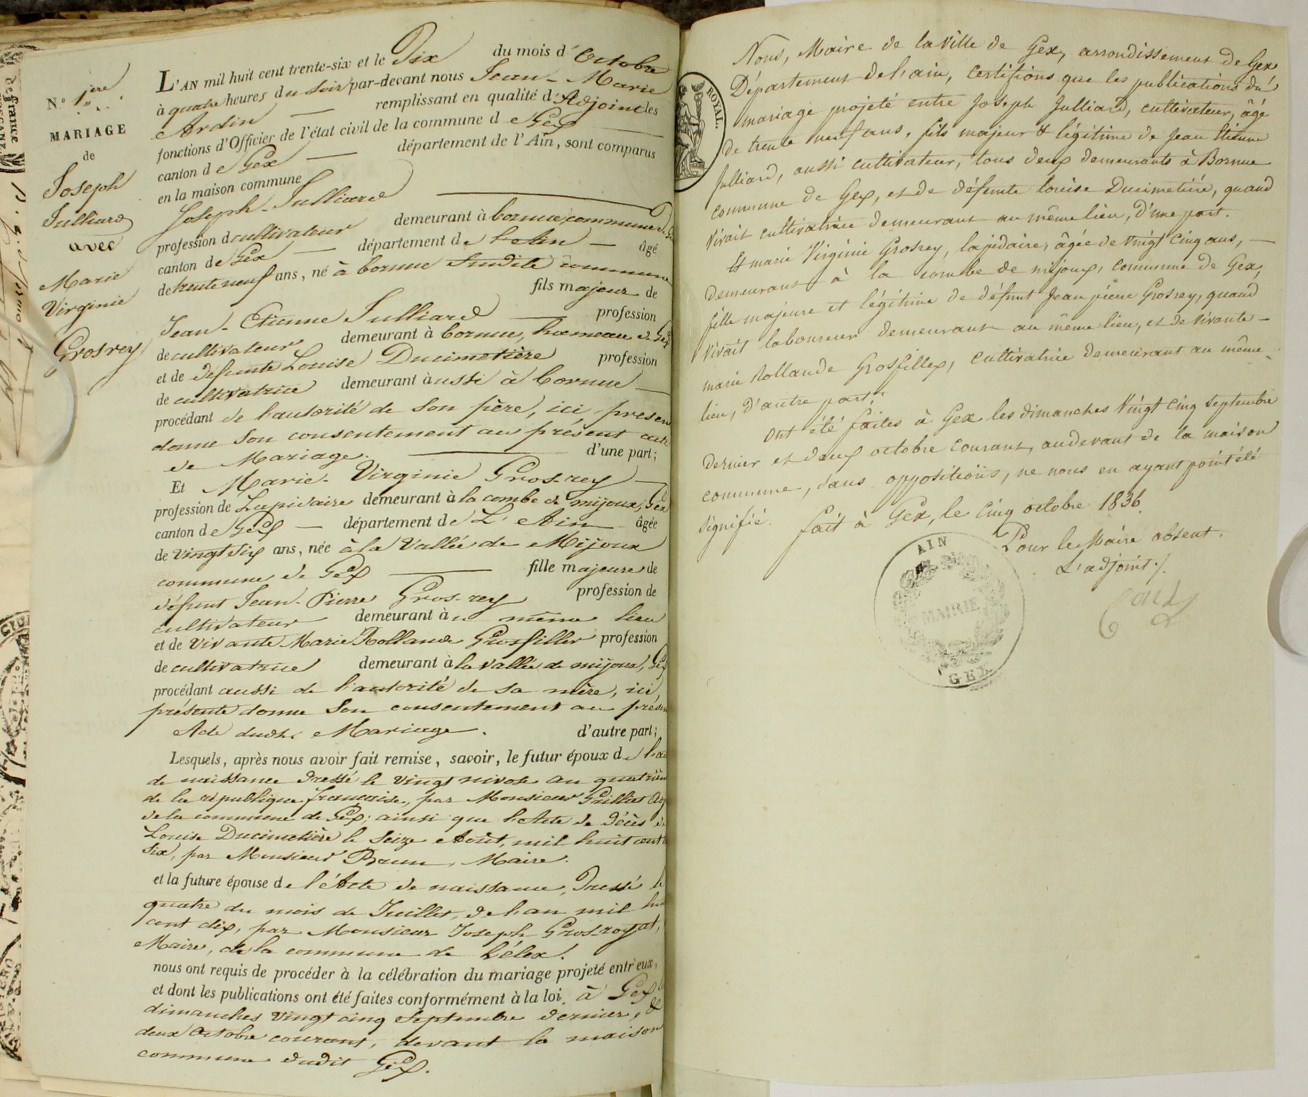 N° 1ere
MARIAGE
de
Joseph
Julliard
avec
Marie
Virginie
Grosrey
L'AN mil huit cent trente-six et le Dix du mois d'Octobre
à quatre heures du soir par-devant nous Jean-Marie
Ardin remplissant en qualité d'Adjoint les
fonctions d'Officier de l'état civil de la commune de Gex
canton de Gex département de l'Ain, sont comparus
en la maison commune
Joseph Julliard
profession d cultivateur demeurant à Cornue commune de
canton de Gex département de l'ain âgé
de trente neuf ans, né à Cornue Susdite commune
fils majeur de
Jean-Etienne Julliard profession
de cultivateur demeurant à Cornue, hameau de Gex
et de défunte Louise Ducimetière profession
de cultivatrice demeurant aussi à Cornue
procédant de l'autorité de Son père, ici présent
donne Son consentement au présent acte
de Mariage. d'une part;
Et Marie-Virginie Grosrey
profession de Lapidaire demeurant à la combe de mijoux, Gex
canton de Gex département de L'Ain âgée
de Vingt Six ans, née à la Vallée de Mijoux
commune de Gex fille majeure de
défunt Jean-Pierre Grosrey profession de
cultivateur demeurant à même lieu
et de Vivante Marie Rollande Grosfillex profession
de cultivatrice demeurant à la Vallée de mijoux, Gex
procédant aussi de l'autorité de Sa mère, ici
présente donne Son consentement au présent
Acte dudit Mariage. d'autre part;
Lesquels, après nous avoir fait remise, savoir, le futur époux de
de naissance Dressé le Vingt nivose an quatrième
de la république française, par Monsieur
de la commune de Gex; ainsi que l'Acte de Décès de
Louise Ducimetière le Seize Août, mil huit cent
Six, par Monsieur Maire.
et la future épouse de l'Acte de naissance, Dressé le
quatre du mois de Juillet, de l'an mil huit
cent dix, par Monsieur Joseph Grosroyat,
Maire, de la commune de Lélex.
nous ont requis de procéder à la célébration du mariage projeté entr'eux,
et dont les publications ont été faites conformément à la loi, à Gex
dimanches Vingt cinq Septembre dernier, &
deux Octobre courant, devant la maison
commune dudit Gex.
ROYAL.
Nous, Maire de la Ville de Gex, arrondissement de Gex
Département de l'ain, certifions que les publications du
mariage projeté entre Joseph Julliard, cultivateur, âgé
de trente neuf ans, fils majeur & légitime de Jean Etienne
Julliard, aussi cultivateur, tous deux demeurants à Cornue
commune de Gex, et de défunte Louise Ducimetière, quand
vivait cultivatrice demeurant au même lieu, d'une part.
Et marie Virginie Grosrey, lapidaire, âgée de vingt cinq ans,
demeurant à la combe de mijoux, commune de Gex,
fille majeure et légitime de défunt Jean pierre Grosrey, quand
vivait laboureur demeurant au même lieu, et de vivante
marie Rollande Grosfillex, cultivatrice demeurant au même
lieu, d'autre part;
Ont été faites à Gex les dimanches Vingt Cinq septembre
dernier et deux octobre courant, audevant de la maison
commune, sans oppositions, ne nous en ayant point été
signifié. fait à Gex, le cinq octobre 1836.
Pour le Maire absent.
L'adjoint,
AIN
MAIRIE
GEX